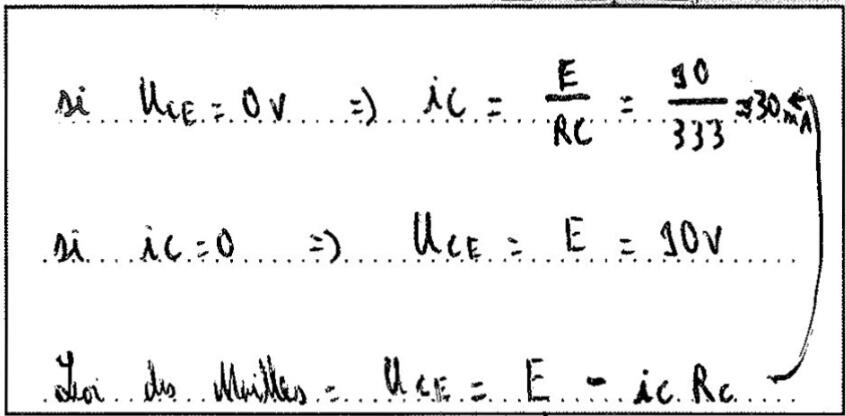 si UCE = 0V => iC = E/RC = 10/333 = 30mA
si iC = 0 => UCE = E = 10V
Loi des Mailles = UCE = E - ic Rc